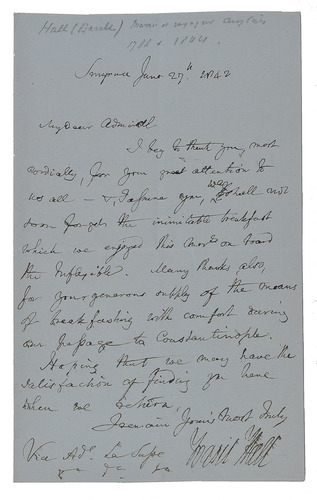 Hall (Basile)
1788 + 1844
Smyrna June 27th 1842
My dear Admiral
I beg to thank you, most
cordially, for your great attention to
us all — & I assure you, we shall not
soon forget the inimitable breakfast
which we enjoyed this morng on board
the Inflexible. Many thanks also,
for your generous supply of the means
of breakfasting with comfort during
our passage to Constantinople.
Hoping that we may have the
satisfaction of finding you here
when we return,
I remain Yours most truly
Basil Hall
Vice Adl. La Susse